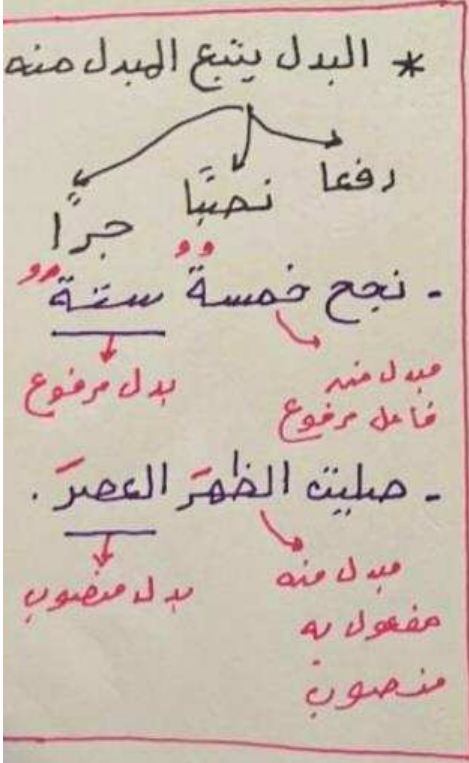 * البدل يتبع المبدل منه
رفعا نصبًا جرًا
- نجح خمسةٌ ستةٌ
مبدل منه
فاعل مرفوع
بدل مرفوع
- صليت الظهرَ العصرَ .
مبدل منه
مفعول به
منصوب
بدل منصوب